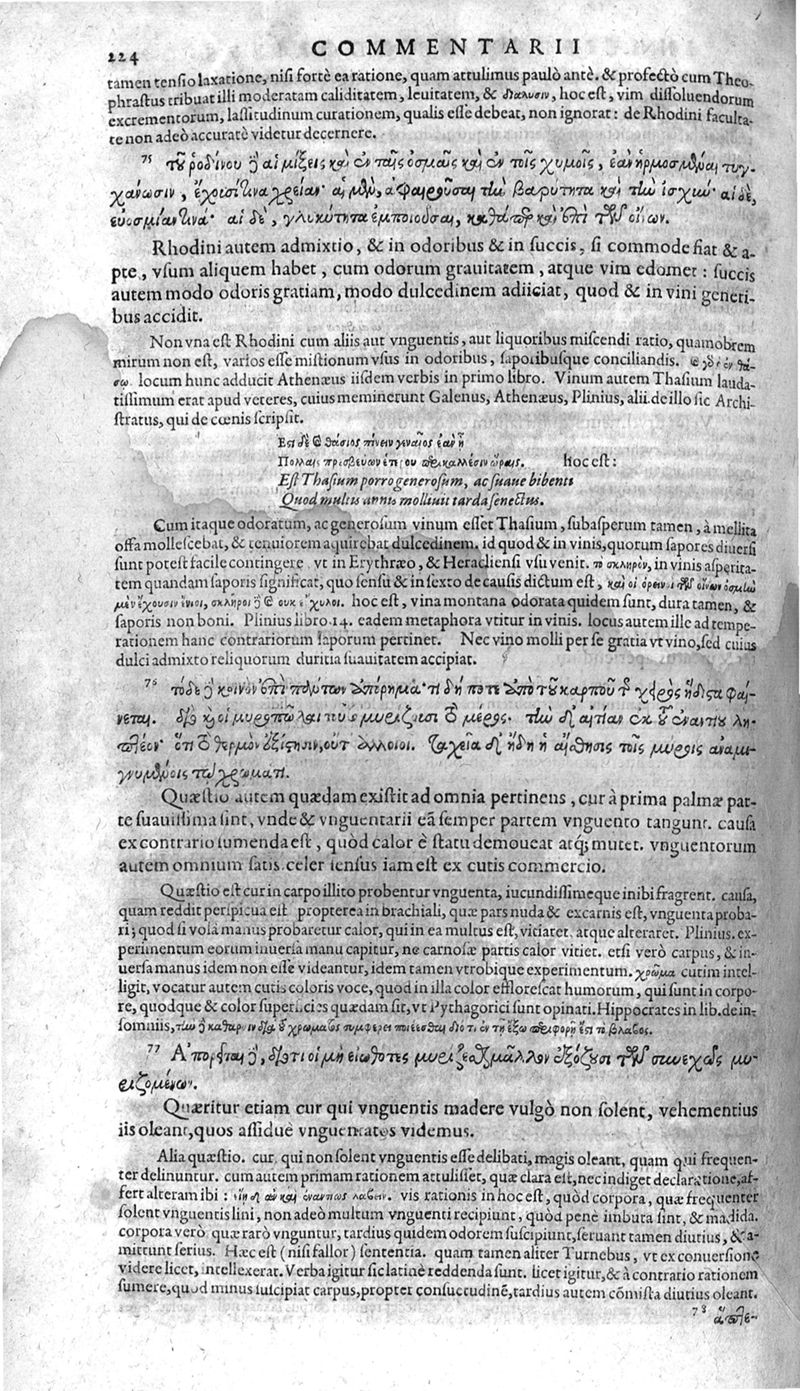 224 COMMENTARII
tamen tensio laxatione, nisi fortè ea ratione, quam attulimus paulò antè. & profectò cum Theo-
phrastus tribuat illi moderatam caliditatem, leuitatem, & διάλυσιν, hoc est, vim dissoluendorum
excrementorum, lassitudinum curationem, qualis esse debeat, non ignorat: de Rhodini faculta-
te non adeò accuratè videtur decernere.
75 τοῦ ῥοδίνου ἢ αἱ μίξεις καὶ ἐν ταῖς ὀσμαῖς καὶ ἐν τοῖς χυμοῖς, ἐὰν ἡρμοσμέναι τυγ-
χάνωσιν, ἔχουσί τινα χρείαν· αἱ μὲν, ἀφαιροῦσαι τὴν βαρύτητα καὶ τὴν ἰσχύν· αἱ δὲ,
εὐοσμίαν τινά· αἱ δὲ, γλυκύτητα ἐμποιοῦσαι, καθάπερ καὶ ἐπὶ τῶν οἴνων.
Rhodini autem admixtio, & in odoribus & in succis, si commode fiat & a-
pte, vsum aliquem habet, cum odorum grauitatem, atque vim edomet: succis
autem modo odoris gratiam, modo dulcedinem adiiciat, quod & in vini generi-
bus accidit.
Non vna est Rhodini cum aliis aut vnguentis, aut liquoribus miscendi ratio, quamobrem
mirum non est, varios esse mistionum vsus in odoribus, saporibusque conciliandis.
locum hunc adducit Athenæus iisdem verbis in primo libro. Vinum autem Thasium lauda-
tissimum erat apud veteres, cuius meminerunt Galenus, Athenæus, Plinius, alii. de illo sic Archi-
stratus, qui de cœnis scripsit.
Ἔστι δὲ ὁ θάσιος πίνειν γενναῖος ἐὰν ᾖ
Πολλαῖς πρεσβεύων ἔτεσιν περικαλλέσιν ὥραις. hoc est:
Est Thasium porro generosum, ac suaue bibenti
Quod multis annis molliuit tarda senectus.
Cum itaque odoratum, ac generosum vinum esset Thasium, subasperum tamen, à mellita
offa mollescebat, & tenuiorem aquirebat dulcedinem. id quod & in vinis, quorum sapores diuersi
sunt potest facile contingere, vt in Erythræo, & Heracliensi vsu venit. τὸ σκληρὸν, in vinis asperita-
tem quandam saporis significat, quo sensu & in sexto de causis dictum est, καὶ οἱ ὀρεινοὶ τῶν οἴνων ὀσμὴν
μὲν ἔχουσιν ἔνιοι, σκληροὶ δὲ καὶ οὐκ εὔχυλοι. hoc est, vina montana odorata quidem sunt, dura tamen, &
saporis non boni. Plinius libro. 14. eadem metaphora vtitur in vinis. locus autem ille ad tempe-
rationem hanc contrariorum saporum pertinet. Nec vino molli per se gratia vt vino, sed cuius
dulci admixto reliquorum duritia suauitatem accipiat.
76 τόδε ἢ κοινὸν ἐπὶ πάντων ἀπόρημα· τί δή ποτε ἀπὸ τοῦ καρποῦ τῆς χειρὸς ἥδιστα φαί-
νεται. διὸ καὶ οἱ μυροπῶλαι τοῦτο μυρίζουσι τὸ μέρος. τὴν δ' αἰτίαν ἐκ τοῦ ἐναντίου λη-
πτέον· ὅτι τὸ θερμὸν ἐξίστησιν, οὔτ' ἀλλοιοῖ. ταχεῖα δ' ἤδη ἡ αἴσθησις τοῖς μύροις ἀναμι-
γνυμένοις τῷ χρώματι.
Quæstio autem quædam existit ad omnia pertinens, cur à prima palmæ par-
te suauissima sint, vnde & vnguentarii eã semper partem vnguento tangunt. causa
ex contrario sumenda est, quòd calor è statu demoueat atq; mutet. vnguentorum
autem omnium satis celer sensus iam est ex cutis commercio.
Quæstio est cur in carpo illito probentur vnguenta, iucundissimeque inibi fragrent. causa,
quam reddit peripicua est propterea in brachiali, quæ pars nuda & excarnis est, vnguenta proba-
ri; quod si vola manus probaretur calor, qui in ea multus est, vitiaret, atque alteraret. Plinius. ex-
perimentum eorum inuersa manu capitur, ne carnosæ partis calor vitiet. etsi verò carpus, & in-
uersa manus idem non esse videantur, idem tamen vtrobique experimentum. χρῶμα cutim intel-
ligit, vocatur autem cutis coloris voce, quod in illa color efflorescat humorum, qui sunt in corpo-
re, quodque & color superficies quædam sit, vt Pythagorici sunt opinati. Hippocrates in lib. de in-
somniis, τὴν δὲ κάθαρσιν διὰ τοῦ χρώματος συμφέρει ποιέεσθαι διότι ἐν τῇ ἔξω περιφορῇ ἐστι τὸ βλάβος.
77 Ἀπορεῖται δὲ, διότι οἱ μὴ εἰωθότες μυρίζεσθαι μᾶλλον ἐξόζουσι τῶν συνεχῶς μυ-
ριζομένων.
Quæritur etiam cur qui vnguentis madere vulgò non solent, vehementius
iis oleant, quos assiduè vnguentatos videmus.
Alia quæstio. cur, qui non solent vnguentis esse delibati, magis oleant, quam qui frequen-
ter delinuntur. cum autem primam rationem attulisset, quæ clara est, nec indiget declaratione, af-
fert alteram ibi: εἴη δ' ἂν καὶ ἐναντίως λαβεῖν. vis rationis in hoc est, quòd corpora, quæ frequenter
solent vnguentis lini, non adeò multum vnguenti recipiunt, quòd penè imbuta sint, & madida.
corpora verò quæ rarò vnguntur, tardius quidem odorem suscipiunt, seruant tamen diutius, & a-
mittunt serius. Hæc est (nisi fallor) sententia. quam tamen aliter Turnebus, vt ex conuersione
videre licet, intellexerat. Verba igitur sic latinè reddenda sunt. licet igitur, & à contrario rationem
sumere, quod minus suscipiat carpus, propter consuetudinẽ, tardius autem cõmista diutius oleant.
78